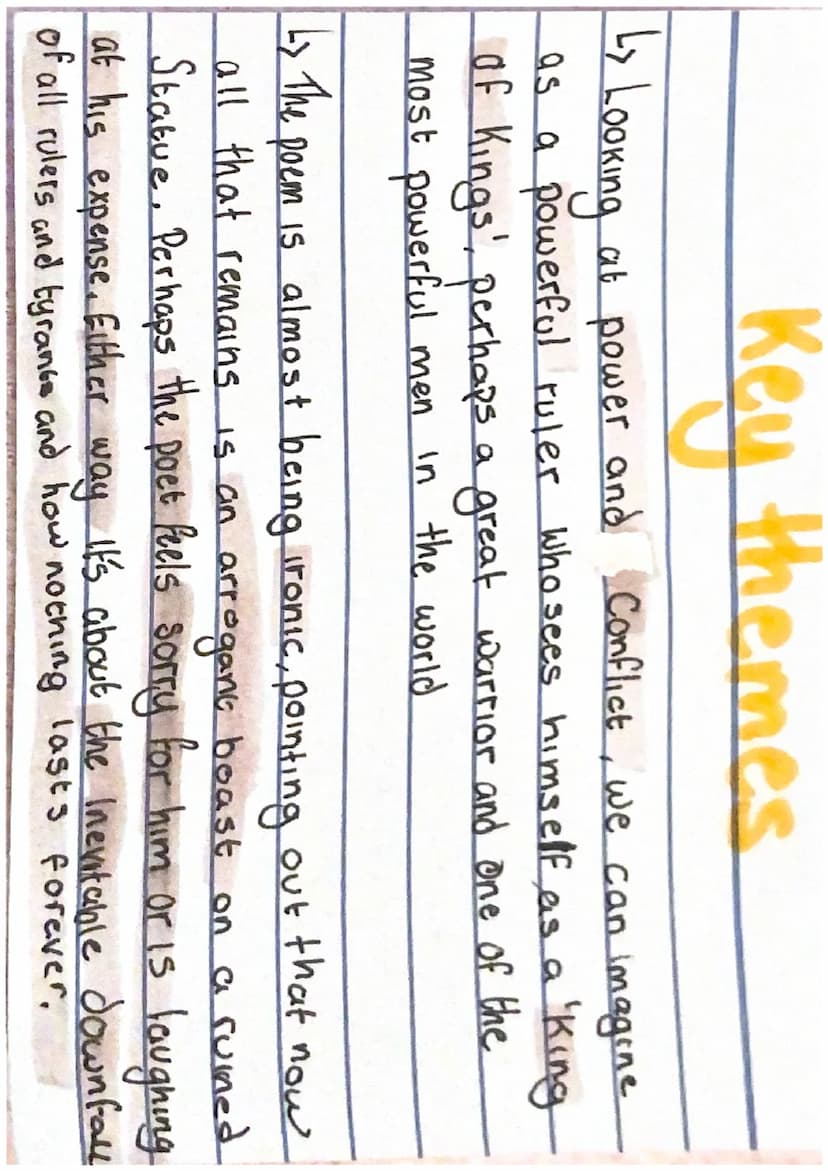 Key themes
↳ Looking at power and Conflict, we can imagine
as a powerful ruler who sees himself as a 'King
of Kings', perhaps a great warrior and one of the
most powerful men in the world
↳ The poem is almost being ironic, pointing out that now
all that remains is an arrogant boast on a ruined
Statue. Perhaps the poet feels sorry for him or is laughing
at his expense. Either way it's about the inevitable downfall
of all rulers and tyrants and how nothing lasts forever.